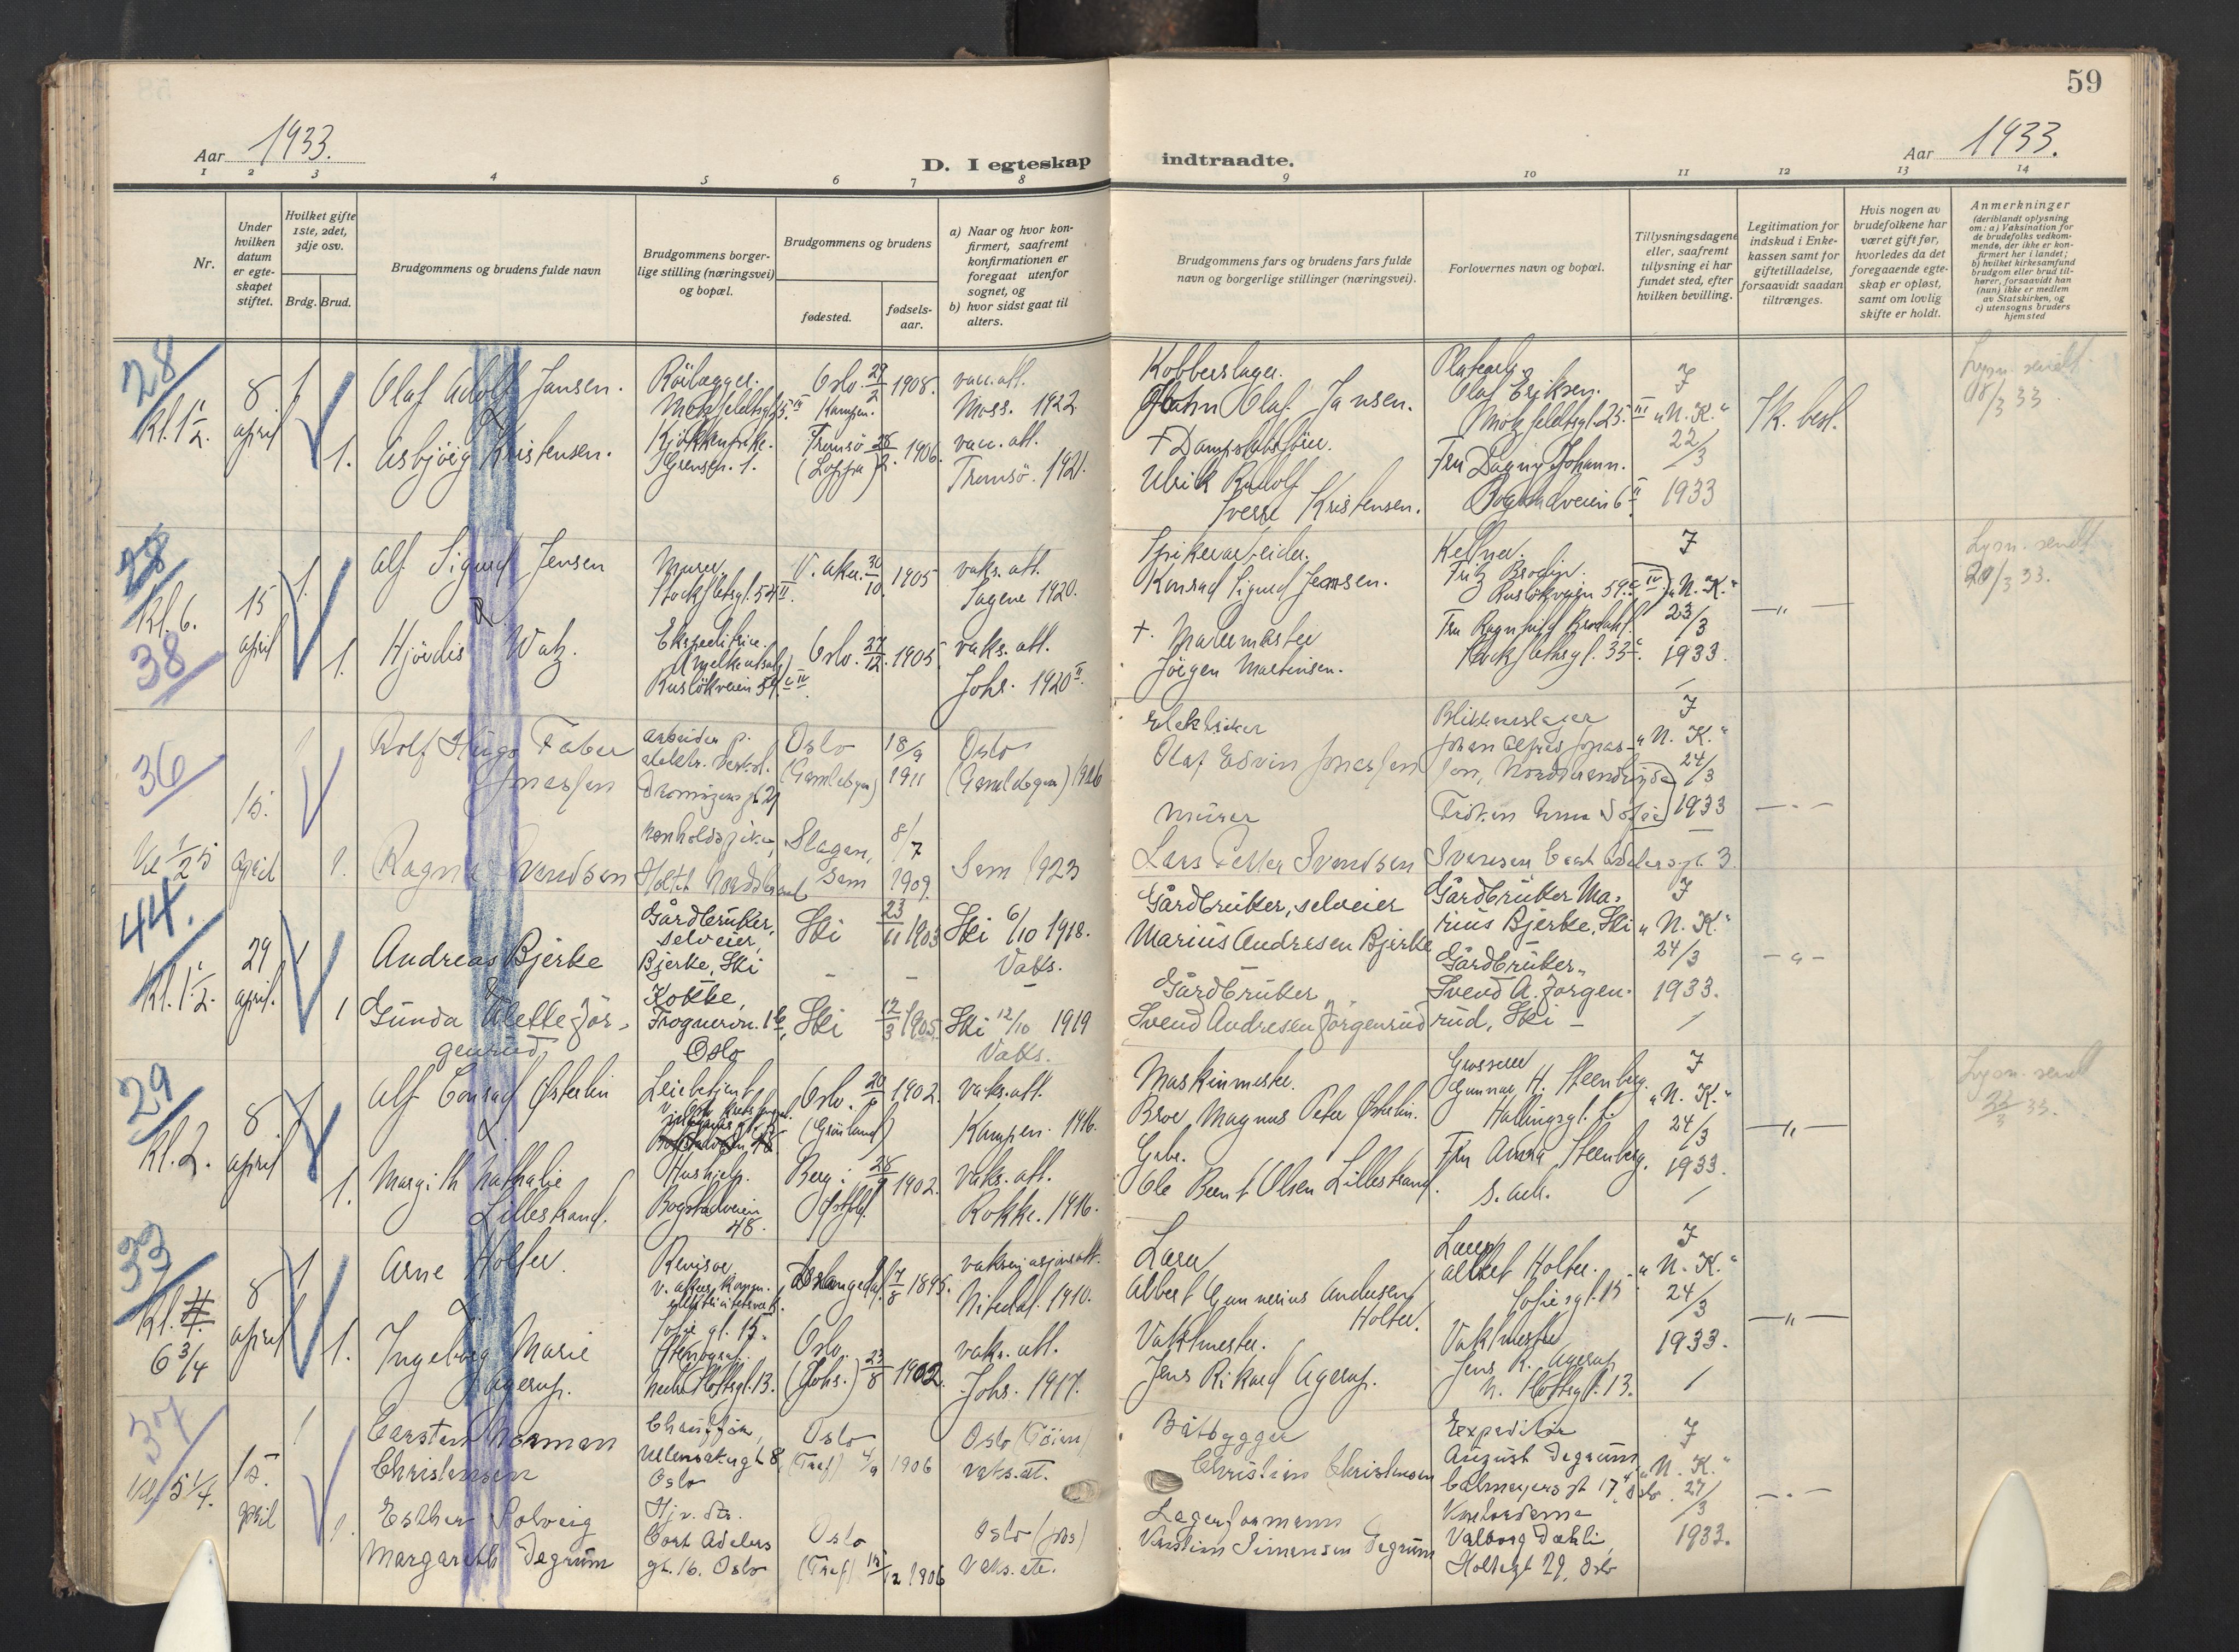 59
Aar 1933.
D. I egteskap
indtraadte.
Aar 1933.
1 2 3 4 5 6 7 8 9 10 11 12 13 14
Nr.
Under
hvilken
datum
er egte-
skapet
stiftet.
Hvilket gifte
1ste, 2det,
3dje osv.
Brdg. Brud.
Brudgommens og brudens fulde navn
Brudgommens borger-
lige stilling (næringsvei)
og bopæl.
Brudgommens og brudens
fødested.
fødsels-
aar.
a) Naar og hvor kon-
firmert, saafremt
konfirmationen er
foregaat utenfor
sognet, og
b) hvor sidst gaat til
alters.
Brudgommens fars og brudens fars fulde
navn og borgerlige stillinger (næringsvei).
Forlovernes navn og bopæl.
Tillysningsdagene
eller, saafremt
tillysning ei har
fundet sted, efter
hvilken bevilling.
Legitimation for
indskud i Enke-
kassen samt for
giftetilladelse,
forsaavidt saadan
tiltrænges.
Hvis nogen av
brudefolkene har
været gift før,
hvorledes da det
foregaaende egte-
skap er opløst,
samt om lovlig
skifte er holdt.
Anmerkninger
(deriblandt oplysning
om: a) Vaksination for
de brudefolks vedkom-
mende, der ikke er kon-
firmert her i landet;
b) hvilket kirkesamfund
brudgom eller brud til-
hører, forsaavidt han
(hun) ikke er medlem
av Statskirken, og
c) utensogns bruders
hjemsted
28
Kl. 1 1/2.
8
april
1
1.
Olaf Adolf Jansen.
&
Asbjörg Kristensen.
Rörlægger.
Kjøkkenpike.
Grensen. 1.
Oslo. 29/2 1908.
Kampen.
Tromsö 1906.
(Loppa)
vacc. att.
Moss. 1922.
vacc. att.
Tromsö. 1921.
Kobberslager.
John Olaf Jansen.
Ulrik Rudolf
Sverre Kristensen.
Olaf Eriksen.
25. III
Fru Dagny Johann.
6 II
7
"N. K."
22/3
1933
Lysn. sendt
18/3 33
28
Kl. 6.
38
15
april
1.
1.
Alf Sigurd Jensen
&
Hjördis Watz.
Murer
Stockflethsgt. 54 II.
Ekspeditrice.
V. aker. 30/10. 1905
Oslo. 27/12. 1905.
vaks. att.
Sagene 1920.
vaks. att.
Johs. 1920 II.
Konrad Sigurd Jensen.
+. Malermester
Jörgen Martinsen.
Kelner.
7
"N. K."
23/3
1933.
— " —
Lysn. sendt
20/3 33.
36
Kl 1/2 5
15.
april
1
1.
Rolf Hugo Faber
Jonassen
Ragna Svendsen
arbeider p.
Oslo
(Gamlebyen)
18/9
1911
Slagen,
Sem
8/7
1909.
Oslo
(Gamlebyen) 1926
Sem 1923
Elektriker
Olaf Edvin Jonassen
Murer
Lars Petter Svendsen
Blikkenslager
Johan Alfred Jonas-
7
"N. K."
24/3
1933
— " —
44.
Kl. 1 1/2.
29
april.
1
1
Andreas Bjerke
&
Gunda Alette Jör-
genrud
Gårdbruker,
selveier,
Bjerke, Ski
Kokke,
Oslo
Ski 23/11 1903
Ski 12/3 1905.
Ski 6/10 1918.
Vaks.
Ski 12/10 1919
Vaks.
Gårdbruker, selveier
Marius Andresen Bjerke
Gårdbruker
Svend Andresen Jörgenrud
Gårdbruker Ma-
rius Bjerke, Ski
Gårdbruker
Svend A. Jørgen-
rud, Ski
7
"N. K."
24/3
1933.
— " —
29
Kl. 2.
8
april
1
1.
Alf Conrad Østerlin
&
Margith Nathalie
Lillestrand.
Hushjelp.
Bogstadveien
48.
Oslo. 1902.
(Grønland)
Berg i 1902.
Østfold.
vaks. att.
Kampen. 1916.
vaks. att.
Rokke. 1916.
Maskinmester.
Magnus Peter Østerlin.
Ole Bernt Olsen Lillestrand.
Grosserer
Gunnar H. Steenberg.
Fru Anna Steenberg.
s. adr.
7
"N. K."
24/3
1933.
— " —
Lysn. sendt
22/3 33.
33
Kl. 4.
6 3/4
8
april
1
1.
Arne Holter.
&
Ingeborg Marie
Agerup.
Revisor
Sofies gt. 15.
Stenograf.
Nedre Slottsgt. 13.
Drangedal. 7/8 1895.
Oslo.
(Johs.) 23/8 1902.
vaksinasjonsatt.
Nitedal. 1910.
vaks. att.
Johs. 1917.
Albert Gunnerius Andersen
Holter.
Vaktmester.
Jens Rikard Agerup.
Albert Holter.
Sofiesgt. 15
Vaktmester
Jens R. Agerup
N. Slottsgt. 13.
7
"N. K."
24/3
1933.
— " —
37
Kl. 5 1/4.
15.
april
1
1.
Carsten Norman
Christensen
Esther Solveig
Margareth Degrum
Chauffør,
Ullensakergt 8,
Oslo
Hjv. dtr.
Cort Adelers
gt. 16. Oslo
Oslo
4/9 1906
Oslo
15/12 1906
Oslo (Tøien)
vaks. att.
Oslo (Johs)
Vaks. att.
Båtbygger
Christian Christensen
Lagerformann
Simensen Degrum
Expeditør
August Degrum
Calmeyersgt 17, Oslo
Valborg Dæhli,
Holtegt 29, Oslo
7
"N. K."
27/3
1933.
— " —